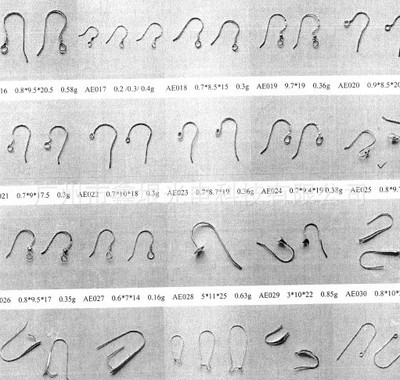 16 0.8*9.5*20.5 0.58g AE017 0.2 /0.3/ 0.4g AE018 0.7*8.5*15 0.3g AE019 9.7*19 0.36g AE020 0.9*8.5*20
021 0.7*9*17.5 0.3g AE022 0.7*10*18 0.3g AE023 0.7*8.7*19 0.36g AE024 0.7*9.4*19 0.38g AE025 0.8*9.7
026 0.8*9.5*17 0.35g AE027 0.6*7*14 0.16g AE028 5*11*25 0.63g AE029 3*10*22 0.85g AE030 0.8*10*